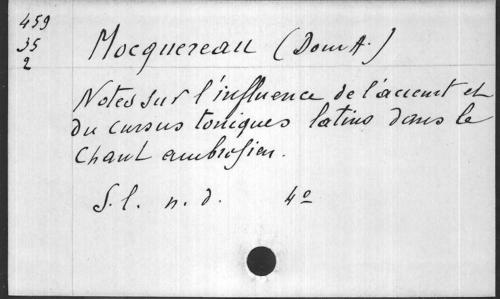 459
35
2
Mocquereau (Dom A.)
Notes sur l'influence de l'accent et
du cursus toniques latins dans le
Chant ambrosien.
S. l. n. d. 4º